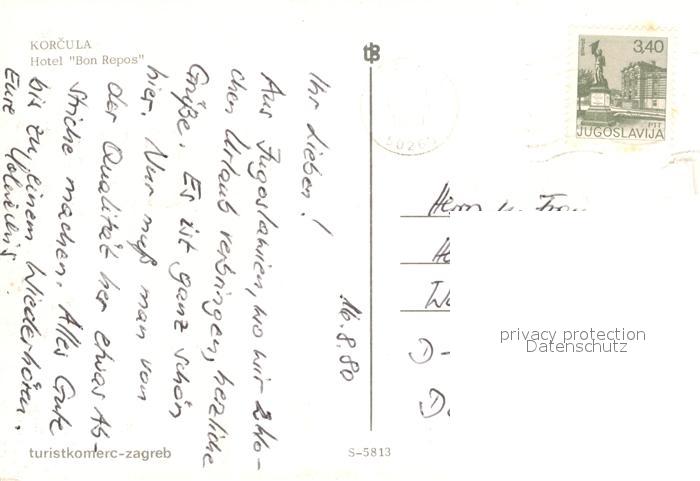 KORČULA
Hotel "Bon Repos"
16.8.80
Ihr Lieben!
Aus Jugoslawien, wo wir 2 Wo-
chen Urlaub verbringen, herzliche
Grüße. Es ist ganz schön
hier. Nur muß man von
der Qualität her etwas Ab-
striche machen. Alles Gute
bis zu einem Wiederhören.
Eure
turistkomerc-zagreb
S-5813
3,40
PTT
JUGOSLAVIJA
Herrn u. Frau
D-
D-
privacy protection
Datenschutz